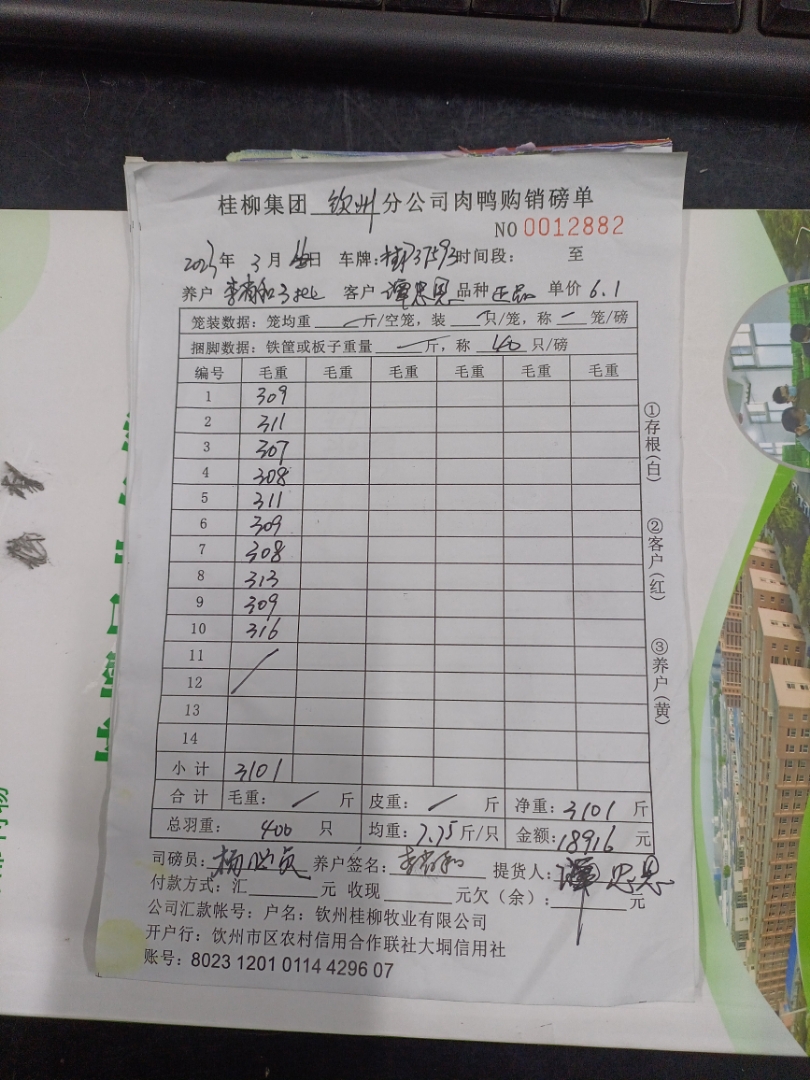 桂柳集团 钦州 分公司肉鸭购销磅单
NO 0012882
2023年 3月 日 车牌: 37593 时间段: 至
养户 李有和 客户 谭忠恩 品种 正品 单价 6.1
笼装数据：笼均重 斤/空笼，装 只/笼，称 笼/磅
捆脚数据：铁筐或板子重量 斤，称 40 只/磅
编号 毛重 毛重 毛重 毛重 毛重 毛重
1 309
2 311
3 307
4 308
5 311
6 309
7 308
8 313
9 309
10 316
11
12
13
14
小计 3101
合计 毛重: 斤 皮重: 斤 净重: 3101 斤
总羽重: 400 只 均重: 7.75 斤/只 金额: 18916 元
司磅员: 养户签名: 李有和 提货人: 谭忠恩
付款方式：汇 元 收现 元欠（余）: 元
公司汇款帐号：户名：钦州桂柳牧业有限公司
开户行：钦州市区农村信用合作联社大垌信用社
账号：8023 1201 0114 4296 07
①存根(白)
②客户(红)
③养户(黄)